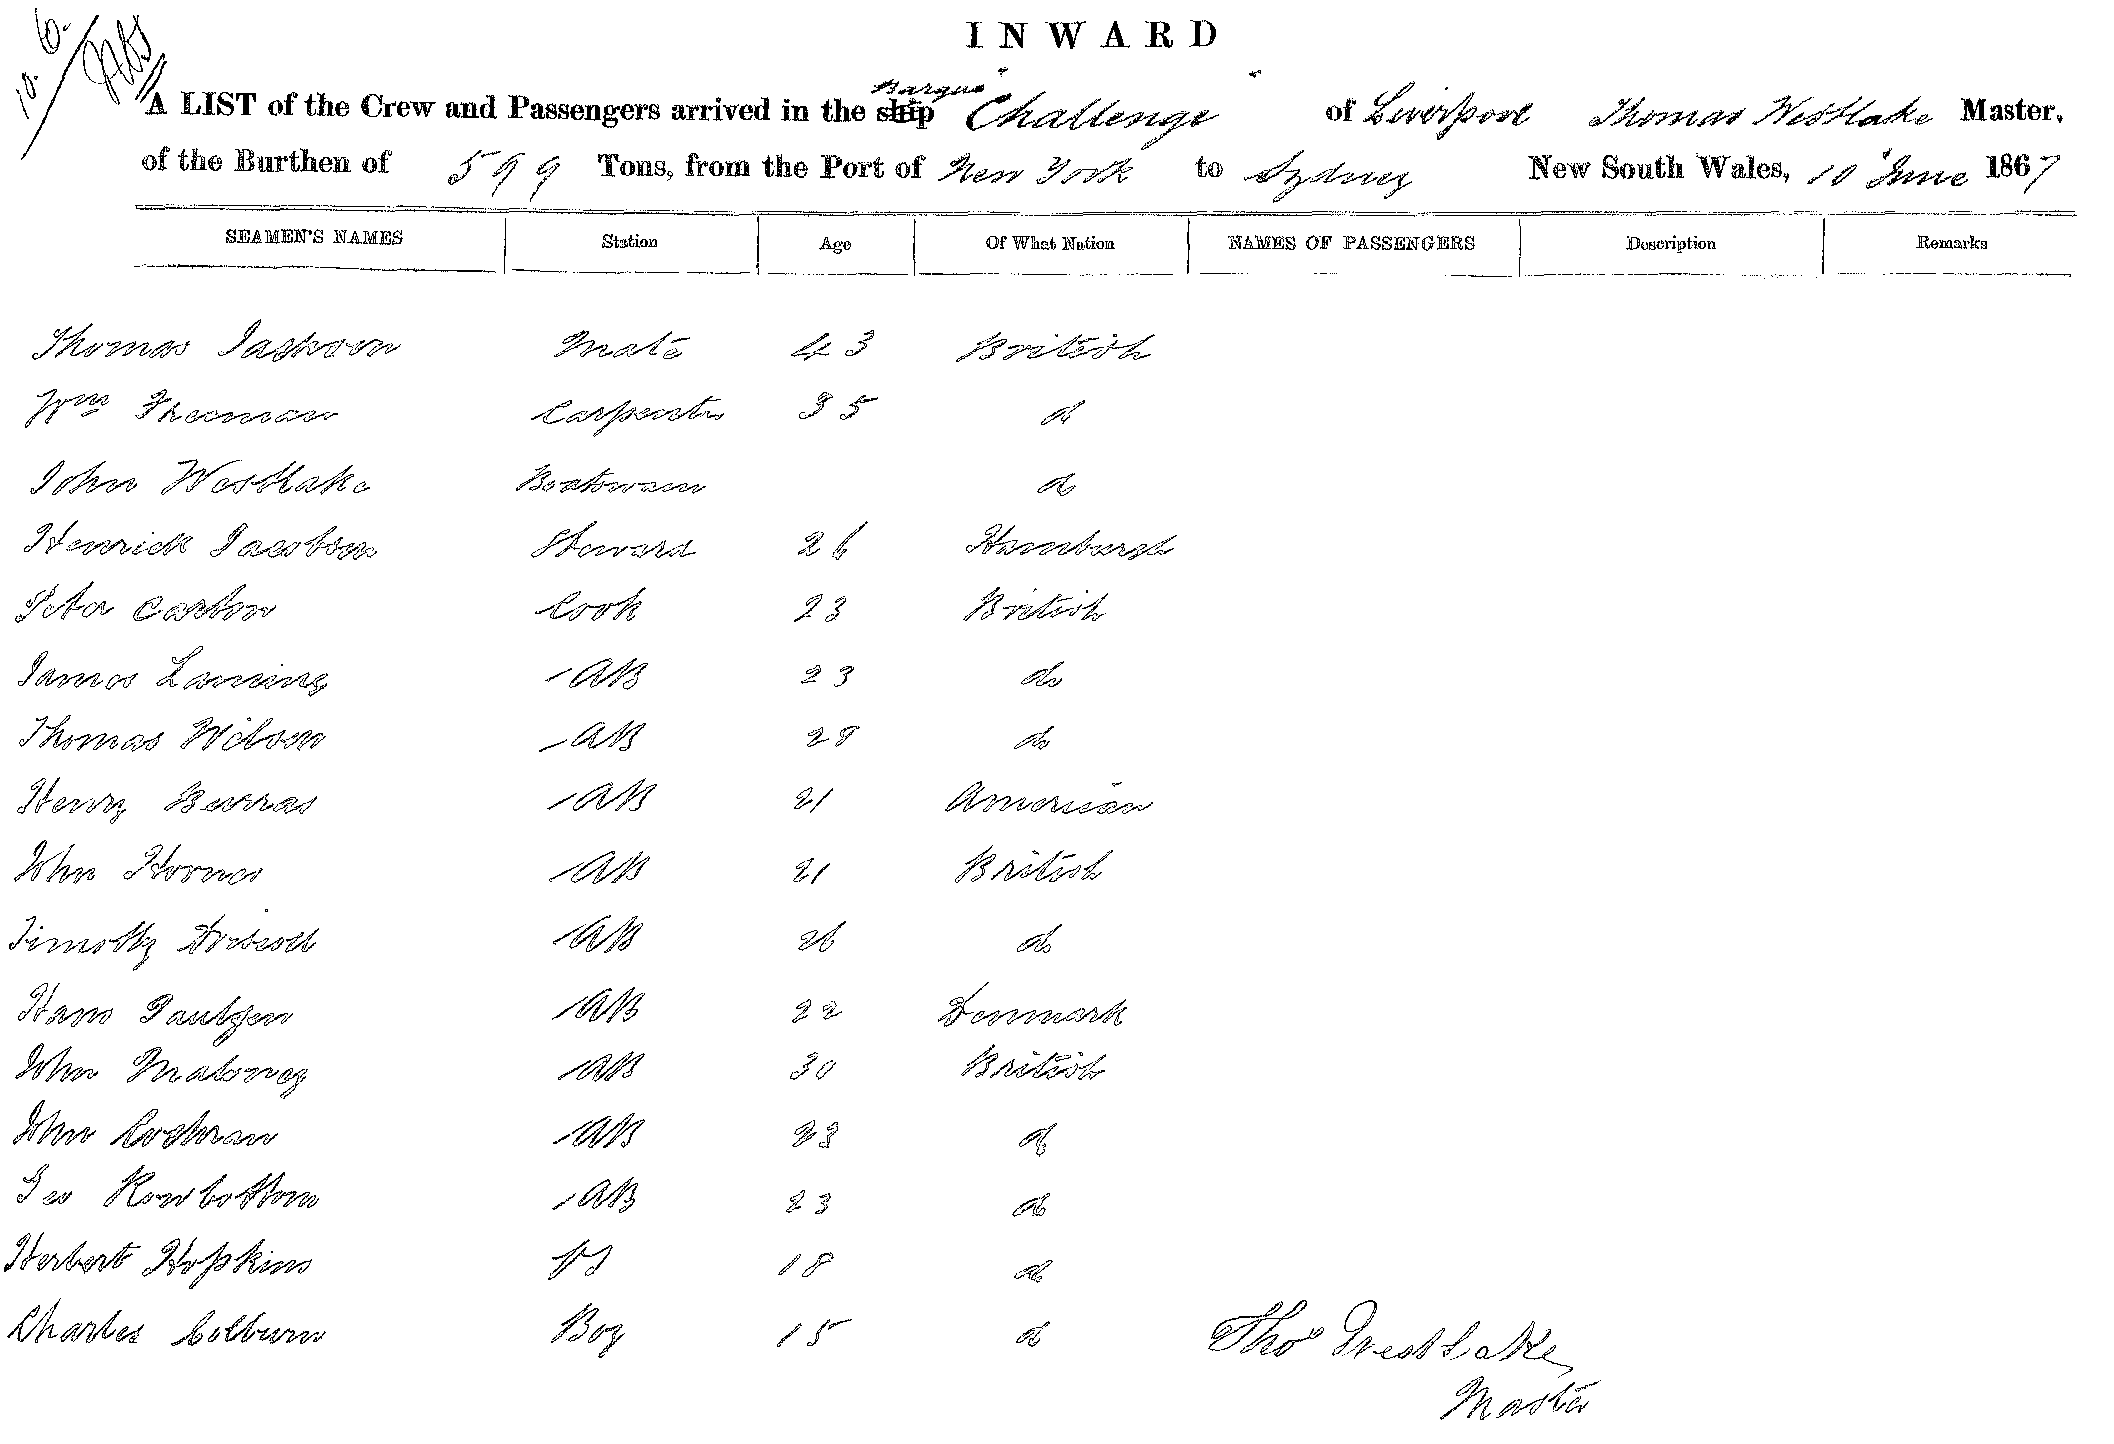 10. 6.
INWARD
Barque
A LIST of the Crew and Passengers arrived in the ship "Challenge" of Liverpool Thomas Westlake Master,
of the Burthen of 599 Tons, from the Port of New York to Sydney New South Wales, 10 June 1867
SEAMEN'S NAMES Station Age Of What Nation NAMES OF PASSENGERS Description Remarks
Thomas Jackson Mate 43 British
Wm Freeman Carpenter 35 do
John Westlake Boatswain do
Henrick Jacobson Steward 26 Hamburgh
Peter Carton Cook 23 British
James Laming AB 23 do
Thomas Wilson AB 28 do
Henry Burras AB 21 American
John Hornes AB 21 British
Timothy Driscoll AB 26 do
Hans Paulsen AB 22 Denmark
John Maloney AB 30 British
John Cochran AB 23 do
Geo Rowbottom AB 23 do
Herbert Hopkins 18 do
Charles Colburn Boy 15 do
Thos Westlake
Master